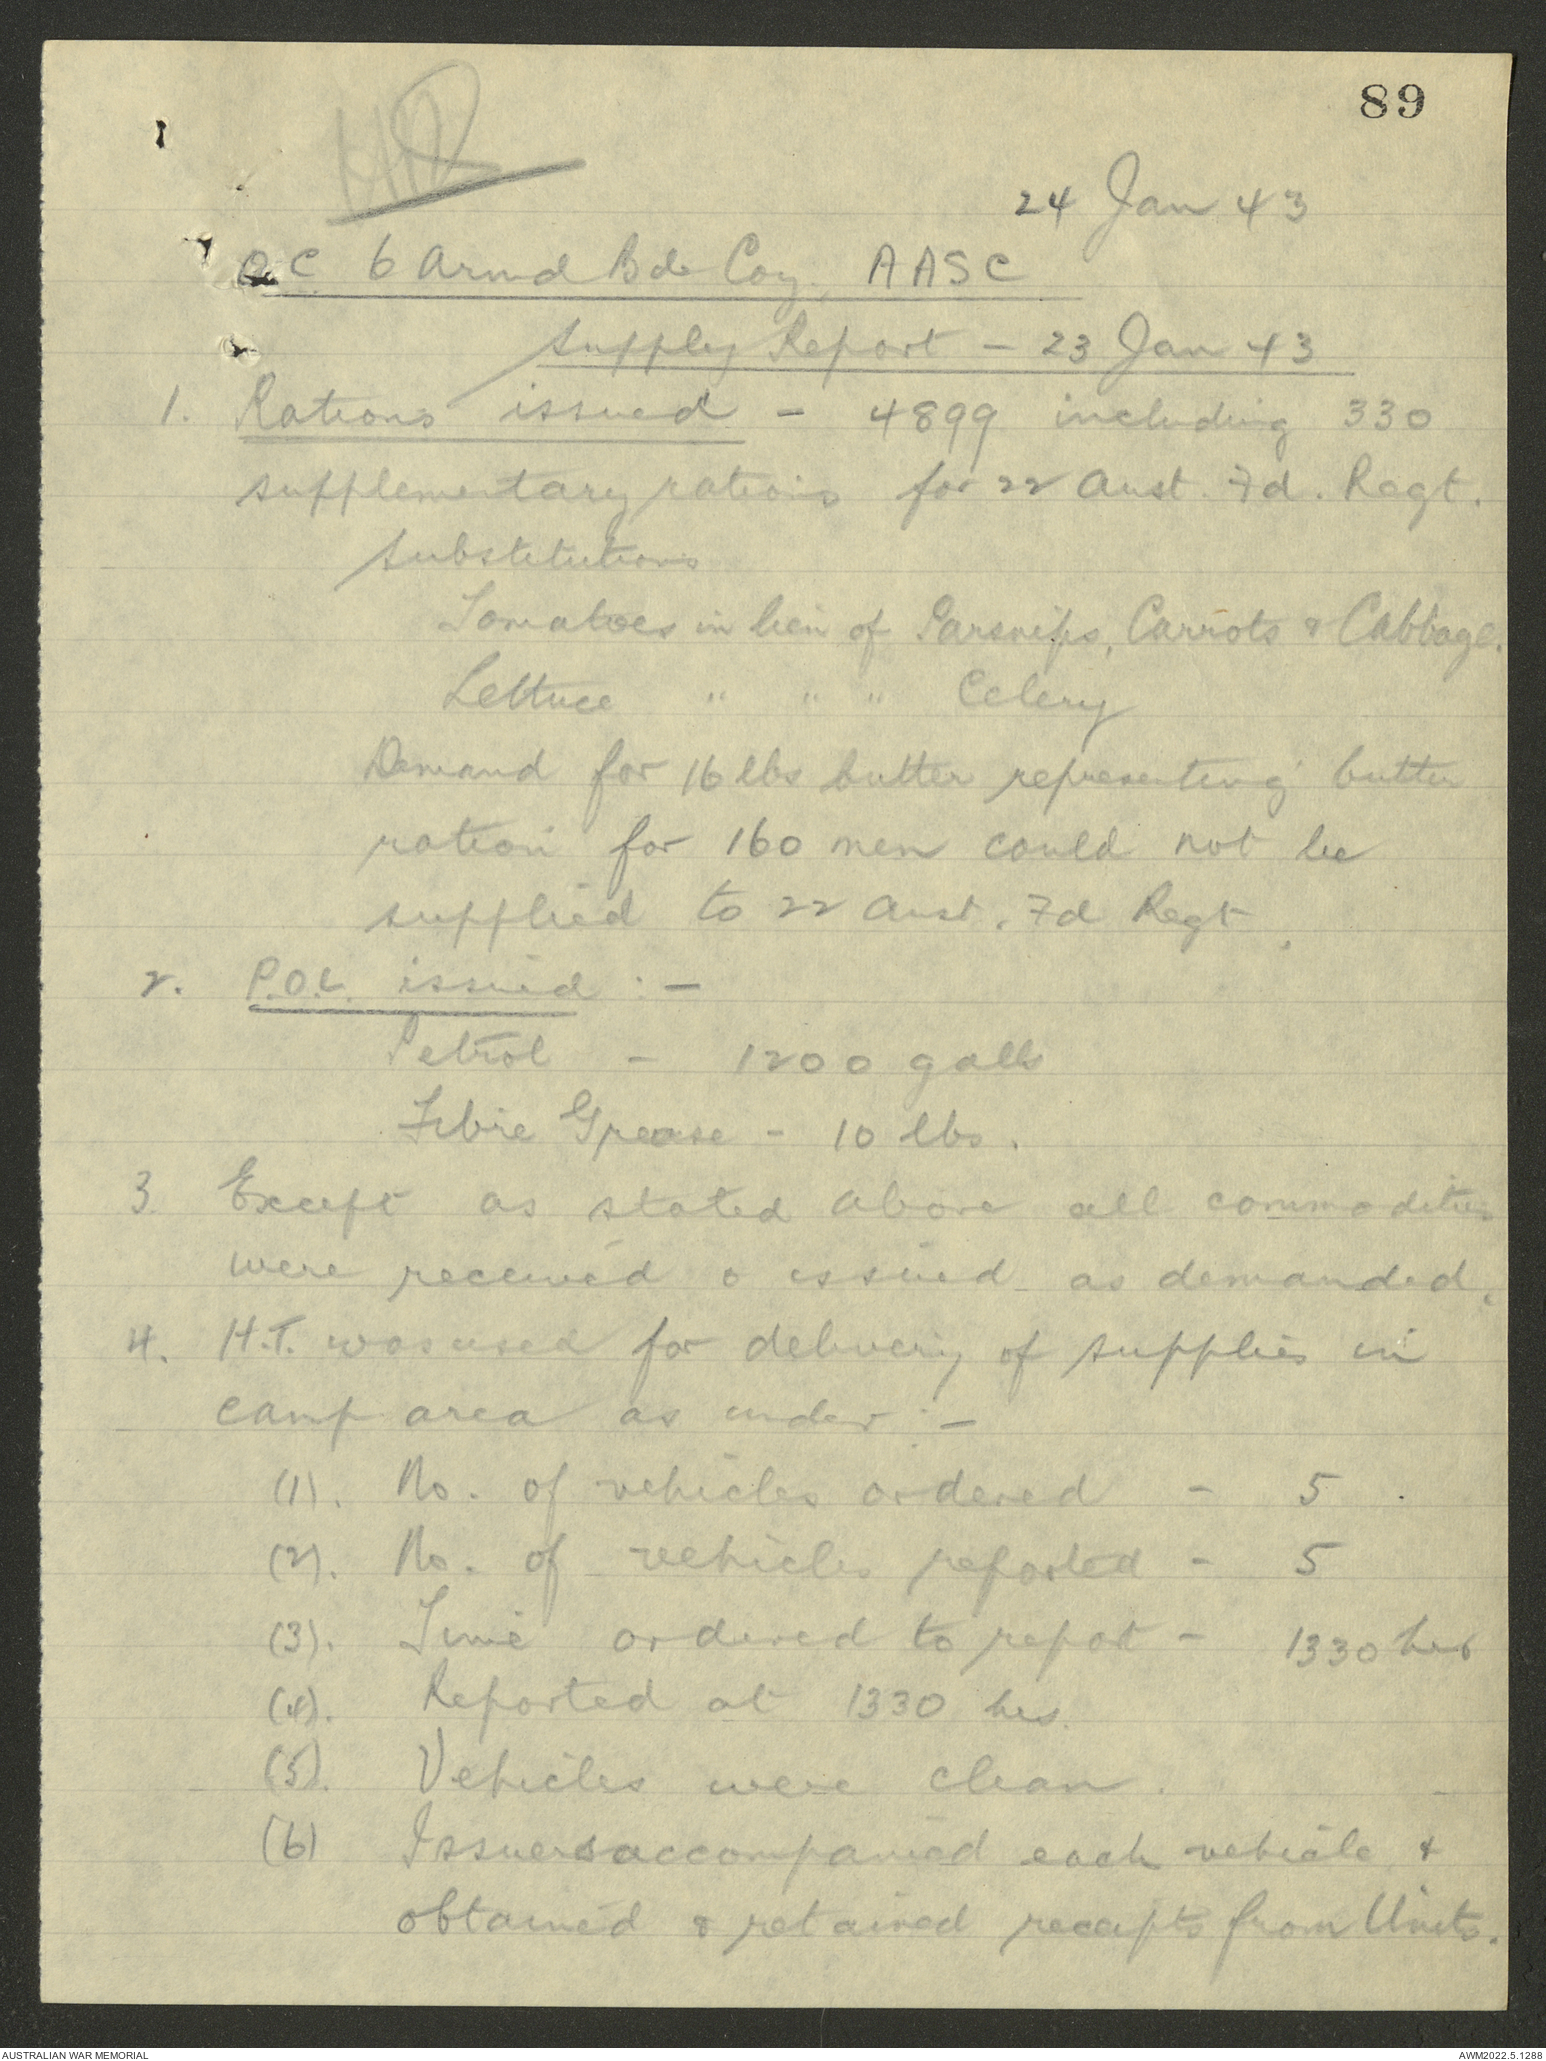 89
24 Jan 43
O.C. 6 Armd Bde Coy, AASC
Supply Report - 23 Jan 43
1. Rations issued - 4899 including 330
supplementary rations for 22 Aust. Fd. Regt.
Substitutions
Tomatoes in lieu of Parsnips, Carrots & Cabbage.
Lettuce " " " Celery
Demand for 16 lbs butter representing butter
ration for 160 men could not be
supplied to 22 Aust. Fd Regt.
2. P.O.L. issued :-
Petrol - 1200 galls
Fibre Grease - 10 lbs.
3. Except as stated above all commodities
were received & issued as demanded.
4. H.T. was used for delivery of supplies in
camp area as under :-
(1). No. of vehicles ordered - 5.
(2). No. of vehicles reported - 5
(3). Time ordered to report - 1330 hrs
(4). Reported at 1330 hrs.
(5). Vehicles were clean.
(6) Issuers accompanied each vehicle &
obtained & retained receipts from Units.
AUSTRALIAN WAR MEMORIAL
AWM2022.5.1288